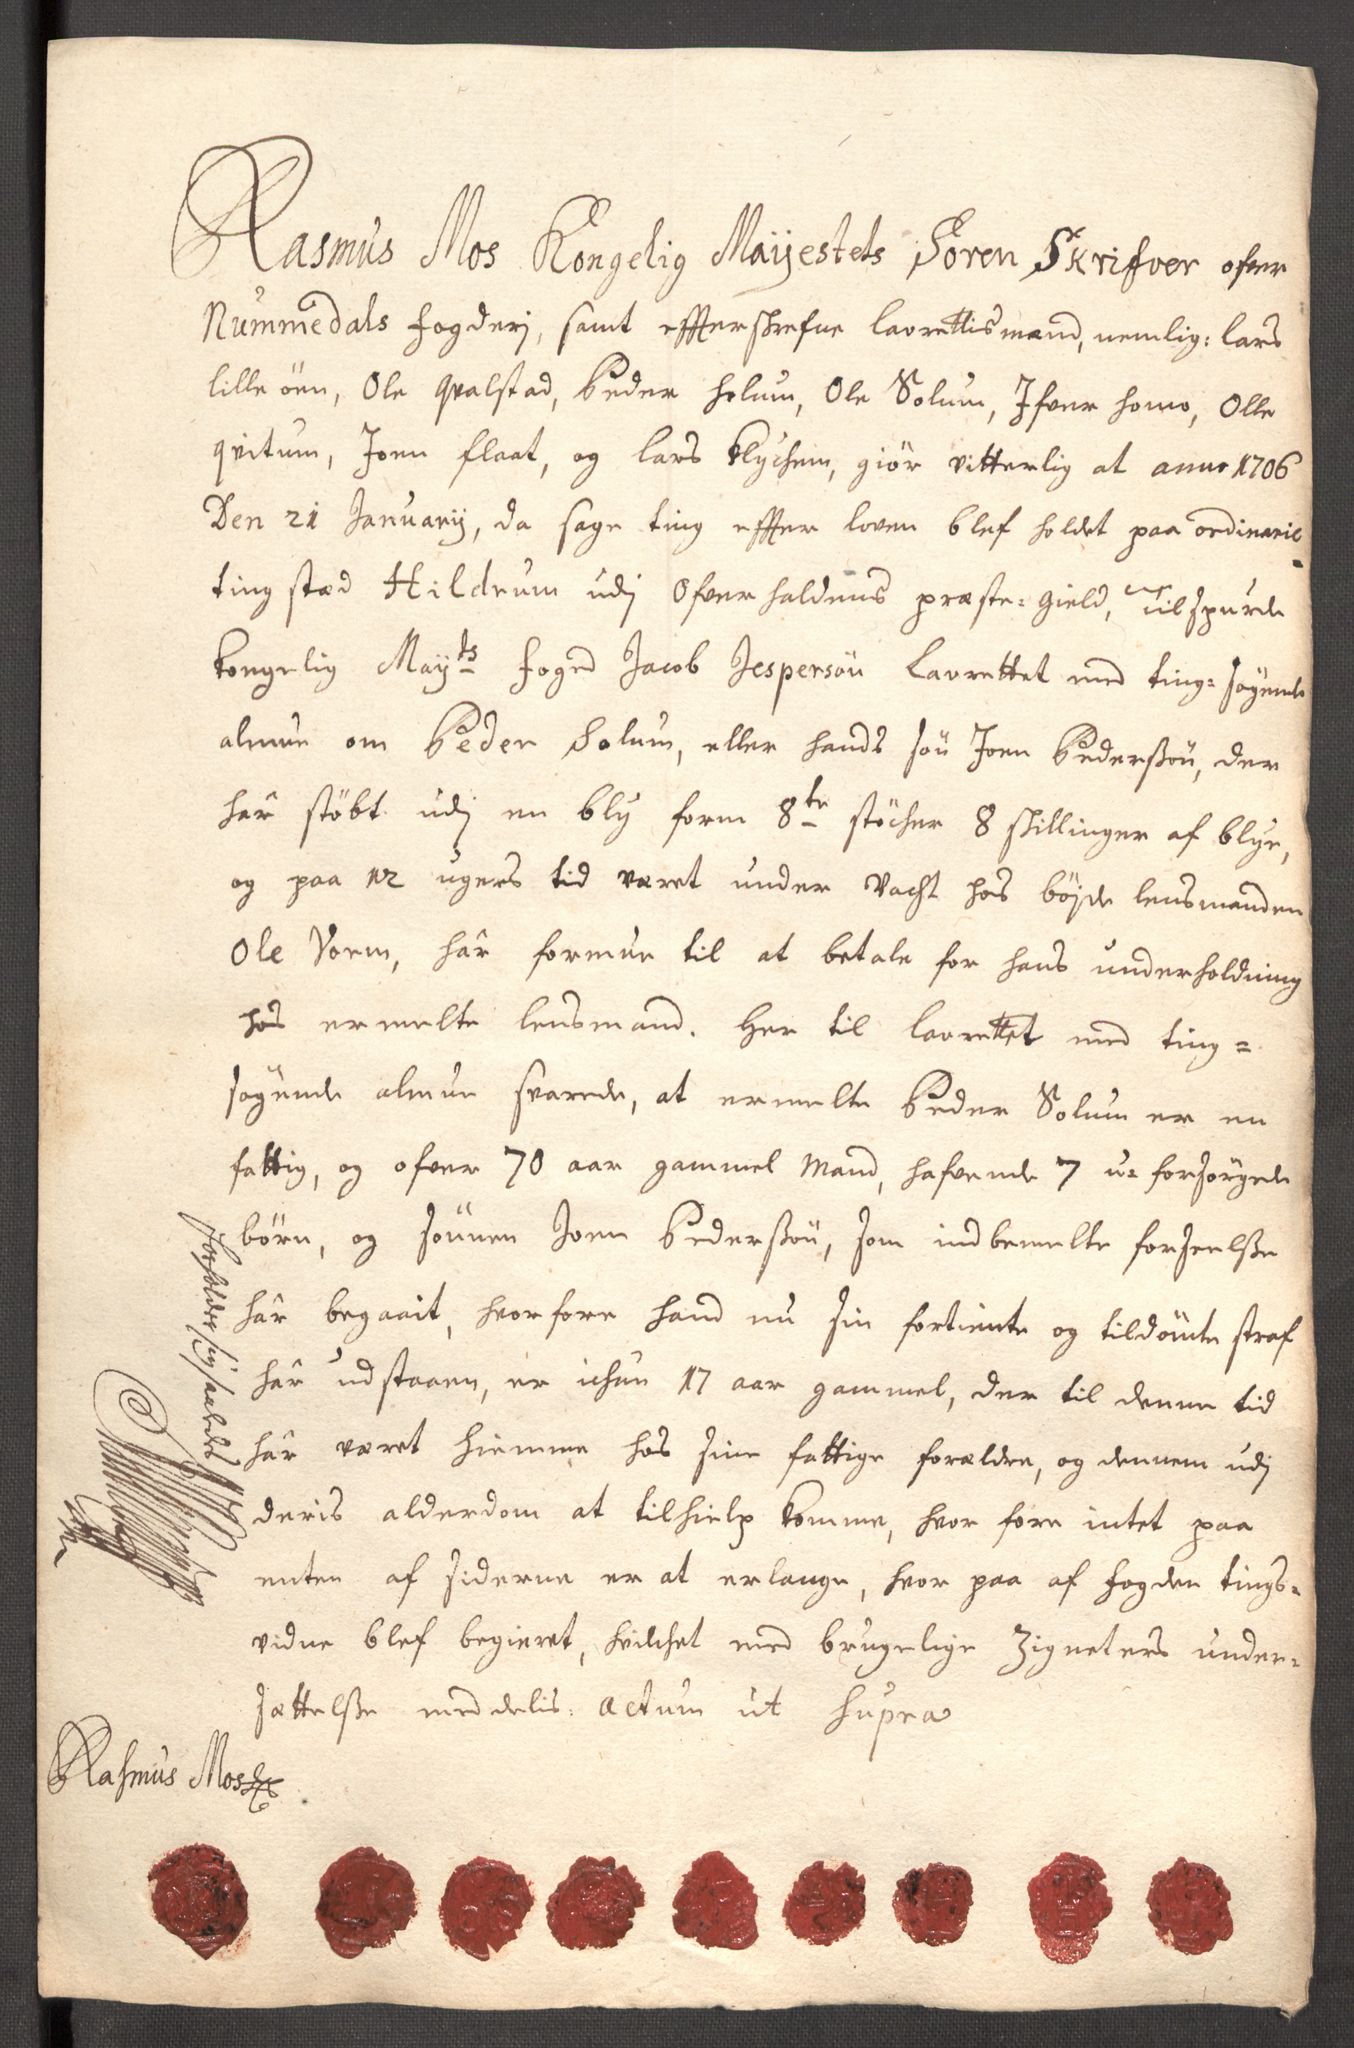 Rasmus Mos Kongelig Maÿestets Soren Skrifver ofver
Nummedals fogderj, samt effterskrefne lavrettismænd, nemlig: lars
lille öen, Ole qvalstad, Peder holum, Ole Solum, Ifver homo, Olle
qvitum, Joen flaat, og lars Klychem, giör vitterlig at anno 1706
Den 21 Januarij, da sage ting effter loven blef holdet paa ordinarie
ting stæd Hildrum udj Ofverhaldens præste-gield, tilspurde
kongelig Maÿts foged Jacob Jespersön Lavrettet med ting-søgende
almue om Peder Solum, eller hands sön Joen Pederssön, der
har stöbt udj en bly form 8te stöcher 8 skillinger af blye,
og paa 12 ugers tid været under vacht hos böjde lensmanden
Ole Vorm, har formue til at betale for hans underholdning
hos ermelte lensmand. Her til lavrettet med ting-
søgende almue svarede, at ermelte Peder Solum er en
fattig, og ofver 70 aar gammel mand, hafvende 7 u-forsörgede
börn, og sönnen Joen Pederssön, som indbemelte forseelsse
har begaait, hvorfore hand nu sin fortiente og tildömte straf
har udstaaen, er ichun 17 aar gammel, der til denne tid
har været hiemme hos sine fattige forældre, og dennem udj
deris alderdom at tilhielp komme, hvor fore intet paa
enten af siderne er at erlange, hvor paa af fogden tings-
vidne blef begieret, hvilchet med brugelige Zigneters under-
sættelsse meddelis. actum ut supra
Rasmus Mos
forholder sig saaledes